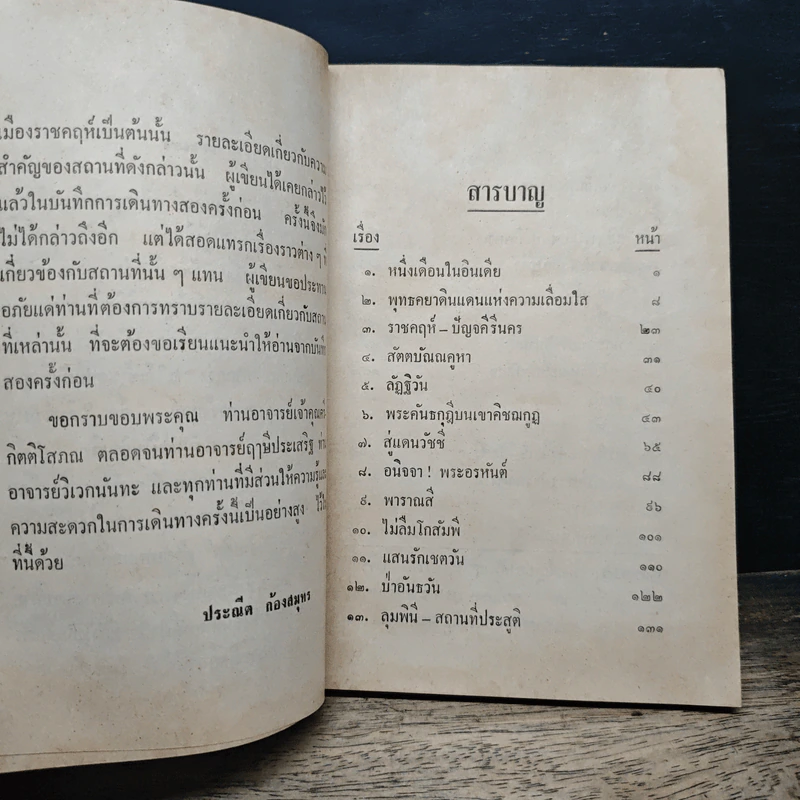 เมืองราชคฤห์เป็นต้นนั้น รายละเอียดเกี่ยวกับความ
สำคัญของสถานที่ดังกล่าวนั้น ผู้เขียนได้เคยกล่าวไว้
แล้วในบันทึกการเดินทางสองครั้งก่อน ครั้งนี้จึงมิ
ไม่ได้กล่าวถึงอีก แต่ได้สอดแทรกเรื่องราวต่าง ๆ ที่
เกี่ยวข้องกับสถานที่นั้น ๆ แทน ผู้เขียนขอประทาน
อภัยแด่ท่านที่ต้องการทราบรายละเอียดเกี่ยวกับสถาน
ที่เหล่านั้น ที่จะต้องขอเรียนแนะนำให้อ่านจากบันทึก
สองครั้งก่อน
ขอกราบขอบพระคุณ ท่านอาจารย์เจ้าคุณ
กิตติโสภณ ตลอดจนท่านอาจารย์ฤาษีประเสริฐ ท่าน
อาจารย์วิเวกนันทะ และทุกท่านที่มีส่วนให้ความรู้และ
ความสะดวกในการเดินทางครั้งนี้เป็นอย่างสูง ไว้ใน
ที่นี้ด้วย
ประณีต ก้องสมุทร
สารบาญ
เรื่อง หน้า
๑. หนึ่งเดือนในอินเดีย ๑
๒. พุทธคยาดินแดนแห่งความเลื่อมใส ๘
๓. ราชคฤห์ – ปัญจคีรีนคร ๒๓
๔. สัตตบัณณคูหา ๓๑
๕. ลัฏฐิวัน ๔๐
๖. พระคันธกุฎีบนเขาคิชฌกูฏ ๔๓
๗. สู่แดนวัชชี ๖๕
๘. อนิจจา ! พระอรหันต์ ๘๘
๙. พาราณสี ๙๖
๑๐. ไม่ลืมโกสัมพี ๑๐๑
๑๑. แสนรักเชตวัน ๑๑๐
๑๒. ป่าอันธวัน ๑๒๒
๑๓. ลุมพินี – สถานที่ประสูติ ๑๓๑